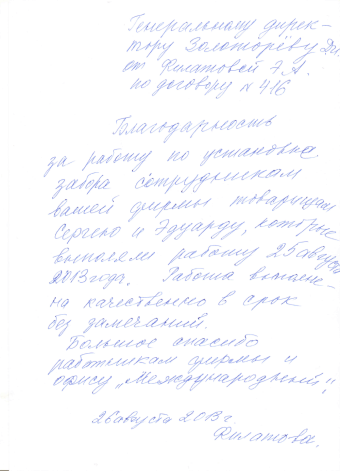 Генеральному дирек-
тору Золоторёву Дм.
от Филатовой Г.А.
по договору № 416
Благодарность
за работу по установке
забора сотрудникам
вашей фирмы товарищам
Сергею и Эдуарду, которые
выполняли работу 25 августа
2013 года. Работа выполне-
на качественно в срок
без замечаний.
Большое спасибо
работникам фирмы и
офису „Международный".
26 августа 2013 г.
Филатова.